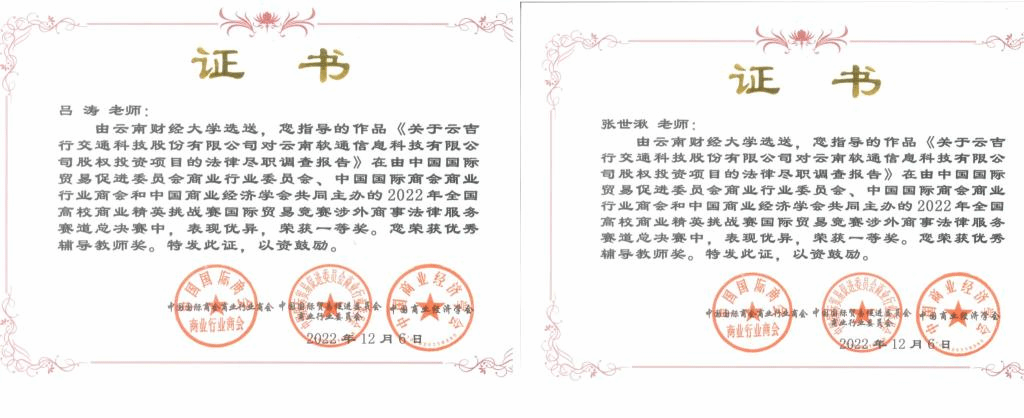 证 书
吕 涛 老师：
由云南财经大学选送，您指导的作品《关于云吉
行交通科技股份有限公司对云南软通信息科技有限公
司股权投资项目的法律尽职调查报告》在由中国国际
贸易促进委员会商业行业委员会、中国国际商会商业
行业商会和中国商业经济学会共同主办的2022年全国
高校商业精英挑战赛国际贸易竞赛涉外商事法律服务
赛道总决赛中，表现优异，荣获一等奖。您荣获优秀
辅导教师奖。特发此证，以资鼓励。
中国国际商会
商业行业商会
中国商业经济学会
中国国际商会商业行业商会
中国国际贸易促进委员会
商业行业委员会
中国商业经济学会
2022年12月6日
证 书
张世湫 老师：
由云南财经大学选送，您指导的作品《关于云吉
行交通科技股份有限公司对云南软通信息科技有限公
司股权投资项目的法律尽职调查报告》在由中国国际
贸易促进委员会商业行业委员会、中国国际商会商业
行业商会和中国商业经济学会共同主办的2022年全国
高校商业精英挑战赛国际贸易竞赛涉外商事法律服务
赛道总决赛中，表现优异，荣获一等奖。您荣获优秀
辅导教师奖。特发此证，以资鼓励。
中国国际商会
商业行业商会
中国商业经济学会
中国国际商会商业行业商会
中国国际贸易促进委员会
商业行业委员会
中国商业经济学会
2022年12月6日